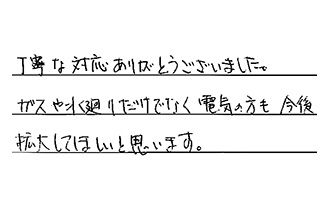 丁寧な対応ありがとうございました。
ガスや水廻りだけでなく電気の方も今後
拡大してほしいと思います。